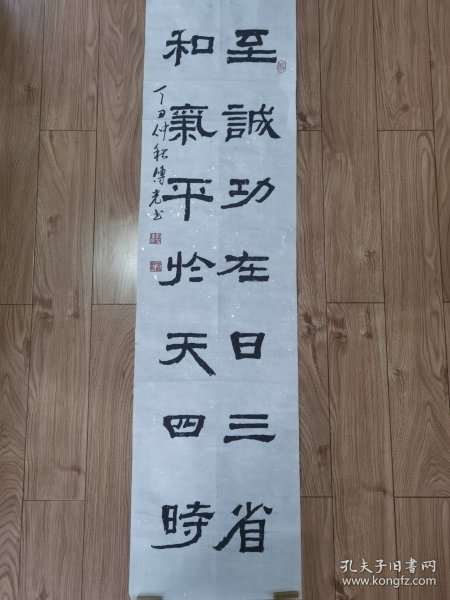 至誠功在日三省
和氣平於天四時
丁丑仲秋傳光书
孔夫子旧书网
www.kongfz.com